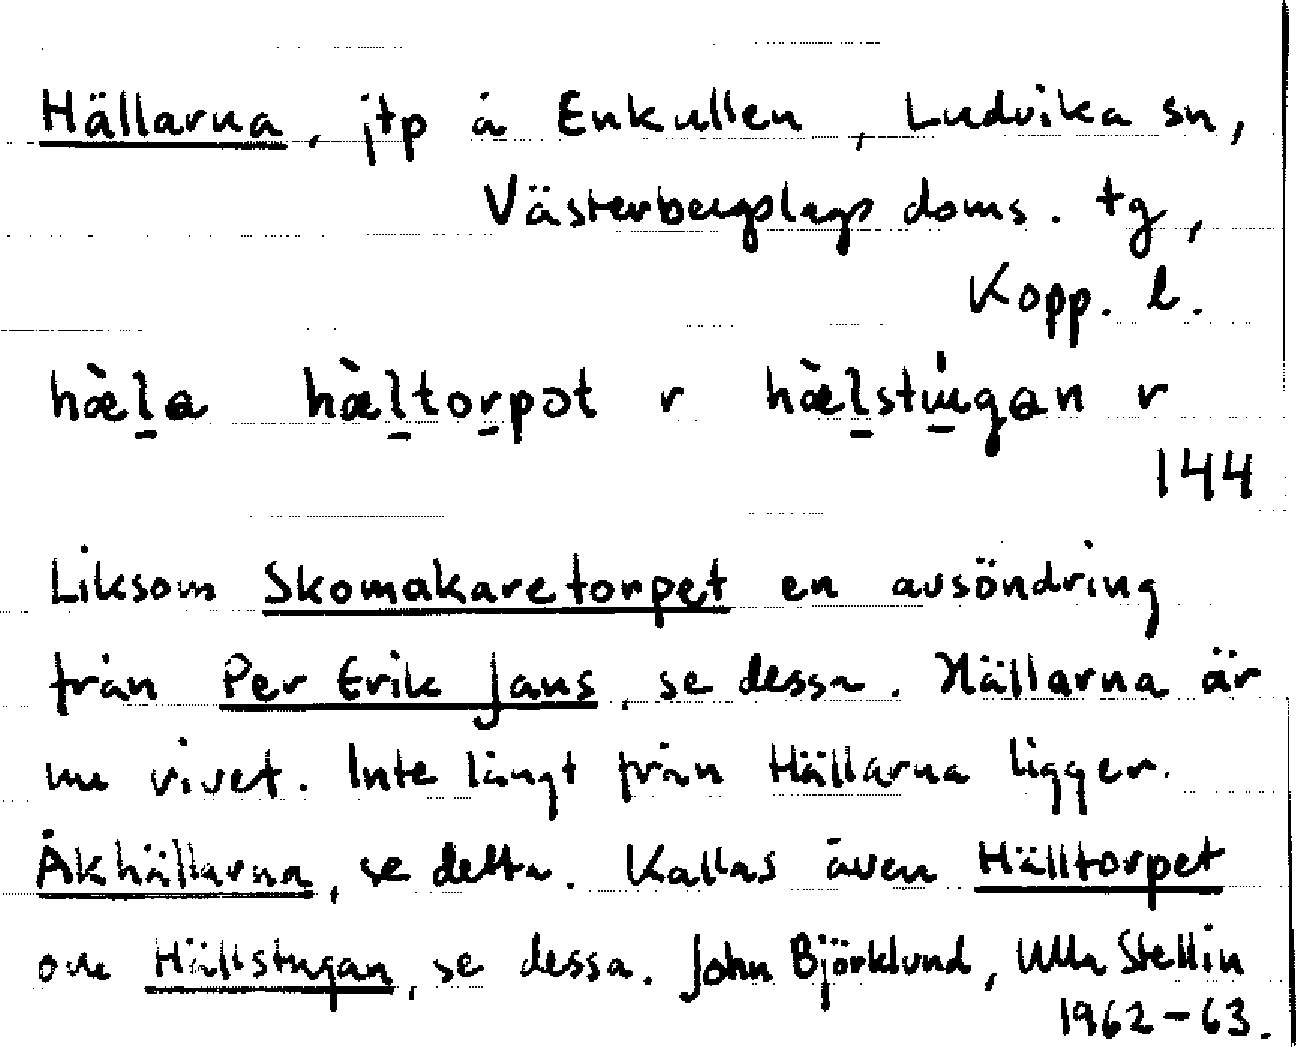 Hällarna, jtp å Enkullen, Ludvika sn,
Västerbergslags doms. tg,
Kopp. l.
hæ̀l̠a hæ̀l̠tor̠pət r hæ̀l̠stu̠gan r
144
Liksom Skomakaretorpet en avsöndring
från Per Erik Jans, se dessa. Hällarna är
nu rivet. Inte långt från Hällarna ligger
Åkhällarna, se detta. Kallas även Hälltorpet
och Hällstugan, se dessa. John Björklund, Ulla Stellin
1962-63.